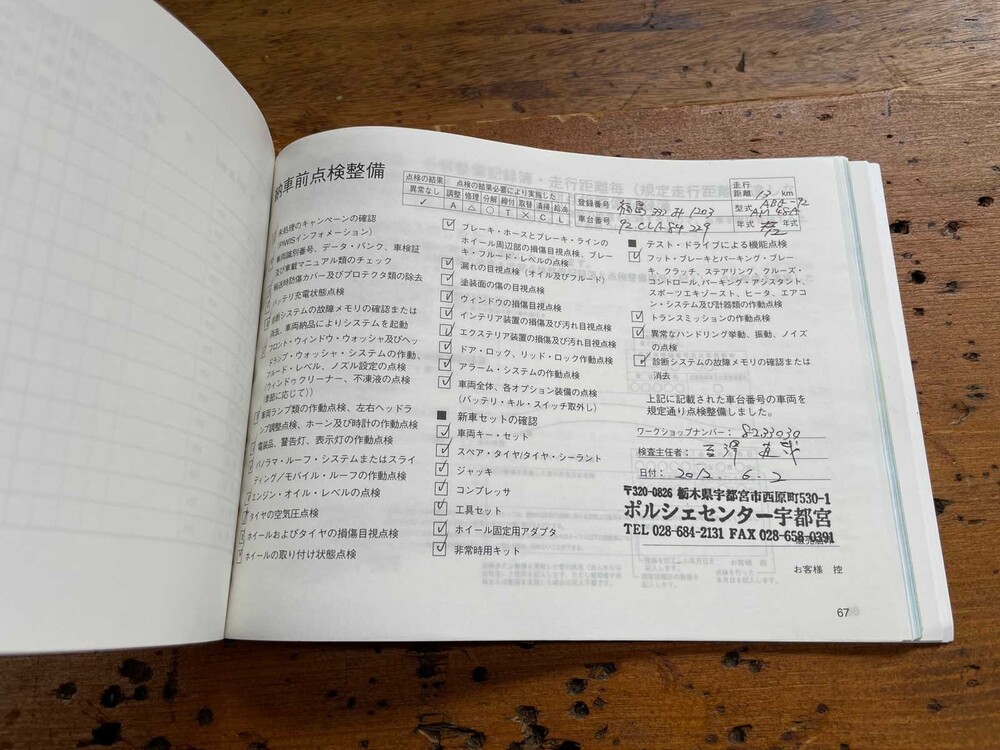 納車前点検整備
点検の結果
異常なし
✓
点検の結果必要により実施した
調整 修理 分解 締付 取替 清掃 給油
A △ ○ T × C L
登録番号
車台番号
走行距離 13 km
型式
年式 12 年式
未処理のキャンペーンの確認
(PIWISインフォメーション)
車両識別番号、データ・バンク、車検証
及び車載マニュアル類のチェック
輸送時防傷カバー及びプロテクタ類の除去
バッテリ充電状態点検
診断システムの故障メモリの確認または
消去、車両納品によりシステムを起動
フロント・ウィンドウ・ウォッシャ及びヘッ
ドランプ・ウォッシャ・システムの作動、
フルード・レベル、ノズル設定の点検
(ウィンドゥクリーナー、不凍液の点検
(季節に応じて))
車両ランプ類の作動点検、左右ヘッドラ
ンプ調整点検、ホーン及び時計の作動点検
電装品、警告灯、表示灯の作動点検
パノラマ・ルーフ・システムまたはスライ
ディング/モバイル・ルーフの作動点検
エンジン・オイル・レベルの点検
タイヤの空気圧点検
ホイールおよびタイヤの損傷目視点検
ホイールの取り付け状態点検
ブレーキ・ホースとブレーキ・ラインの
ホイール周辺部の損傷目視点検、ブレー
キ・フルード・レベルの点検
漏れの目視点検(オイル及びフルード)
塗装面の傷の目視点検
ウィンドウの損傷目視点検
インテリア装置の損傷及び汚れ目視点検
エクステリア装置の損傷及び汚れ目視点検
ドア・ロック、リッド・ロック作動点検
アラーム・システムの作動点検
車両全体、各オプション装備の点検
(バッテリ・キル・スイッチ取外し)
■ 新車セットの確認
車両キー・セット
スペア・タイヤ/タイヤ・シーラント
ジャッキ
コンプレッサ
工具セット
ホイール固定用アダプタ
非常時用キット
■ テスト・ドライブによる機能点検
フット・ブレーキとパーキング・ブレー
キ、クラッチ、ステアリング、クルーズ・
コントロール、パーキング・アシスタント、
スポーツエキゾースト、ヒータ、エアコ
ン・システム及び計器類の作動点検
トランスミッションの作動点検
異常なハンドリング挙動、振動、ノイズ
の点検
診断システムの故障メモリの確認または
消去
上記に記載された車台番号の車両を
規定通り点検整備しました。
ワークショップナンバー: 8233030
検査主任者:
日付: 2012. 6. 2
〒320-0826 栃木県宇都宮市西原町530-1
ポルシェセンター宇都宮
TEL 028-684-2131 FAX 028-658-0391
お客様 控
67